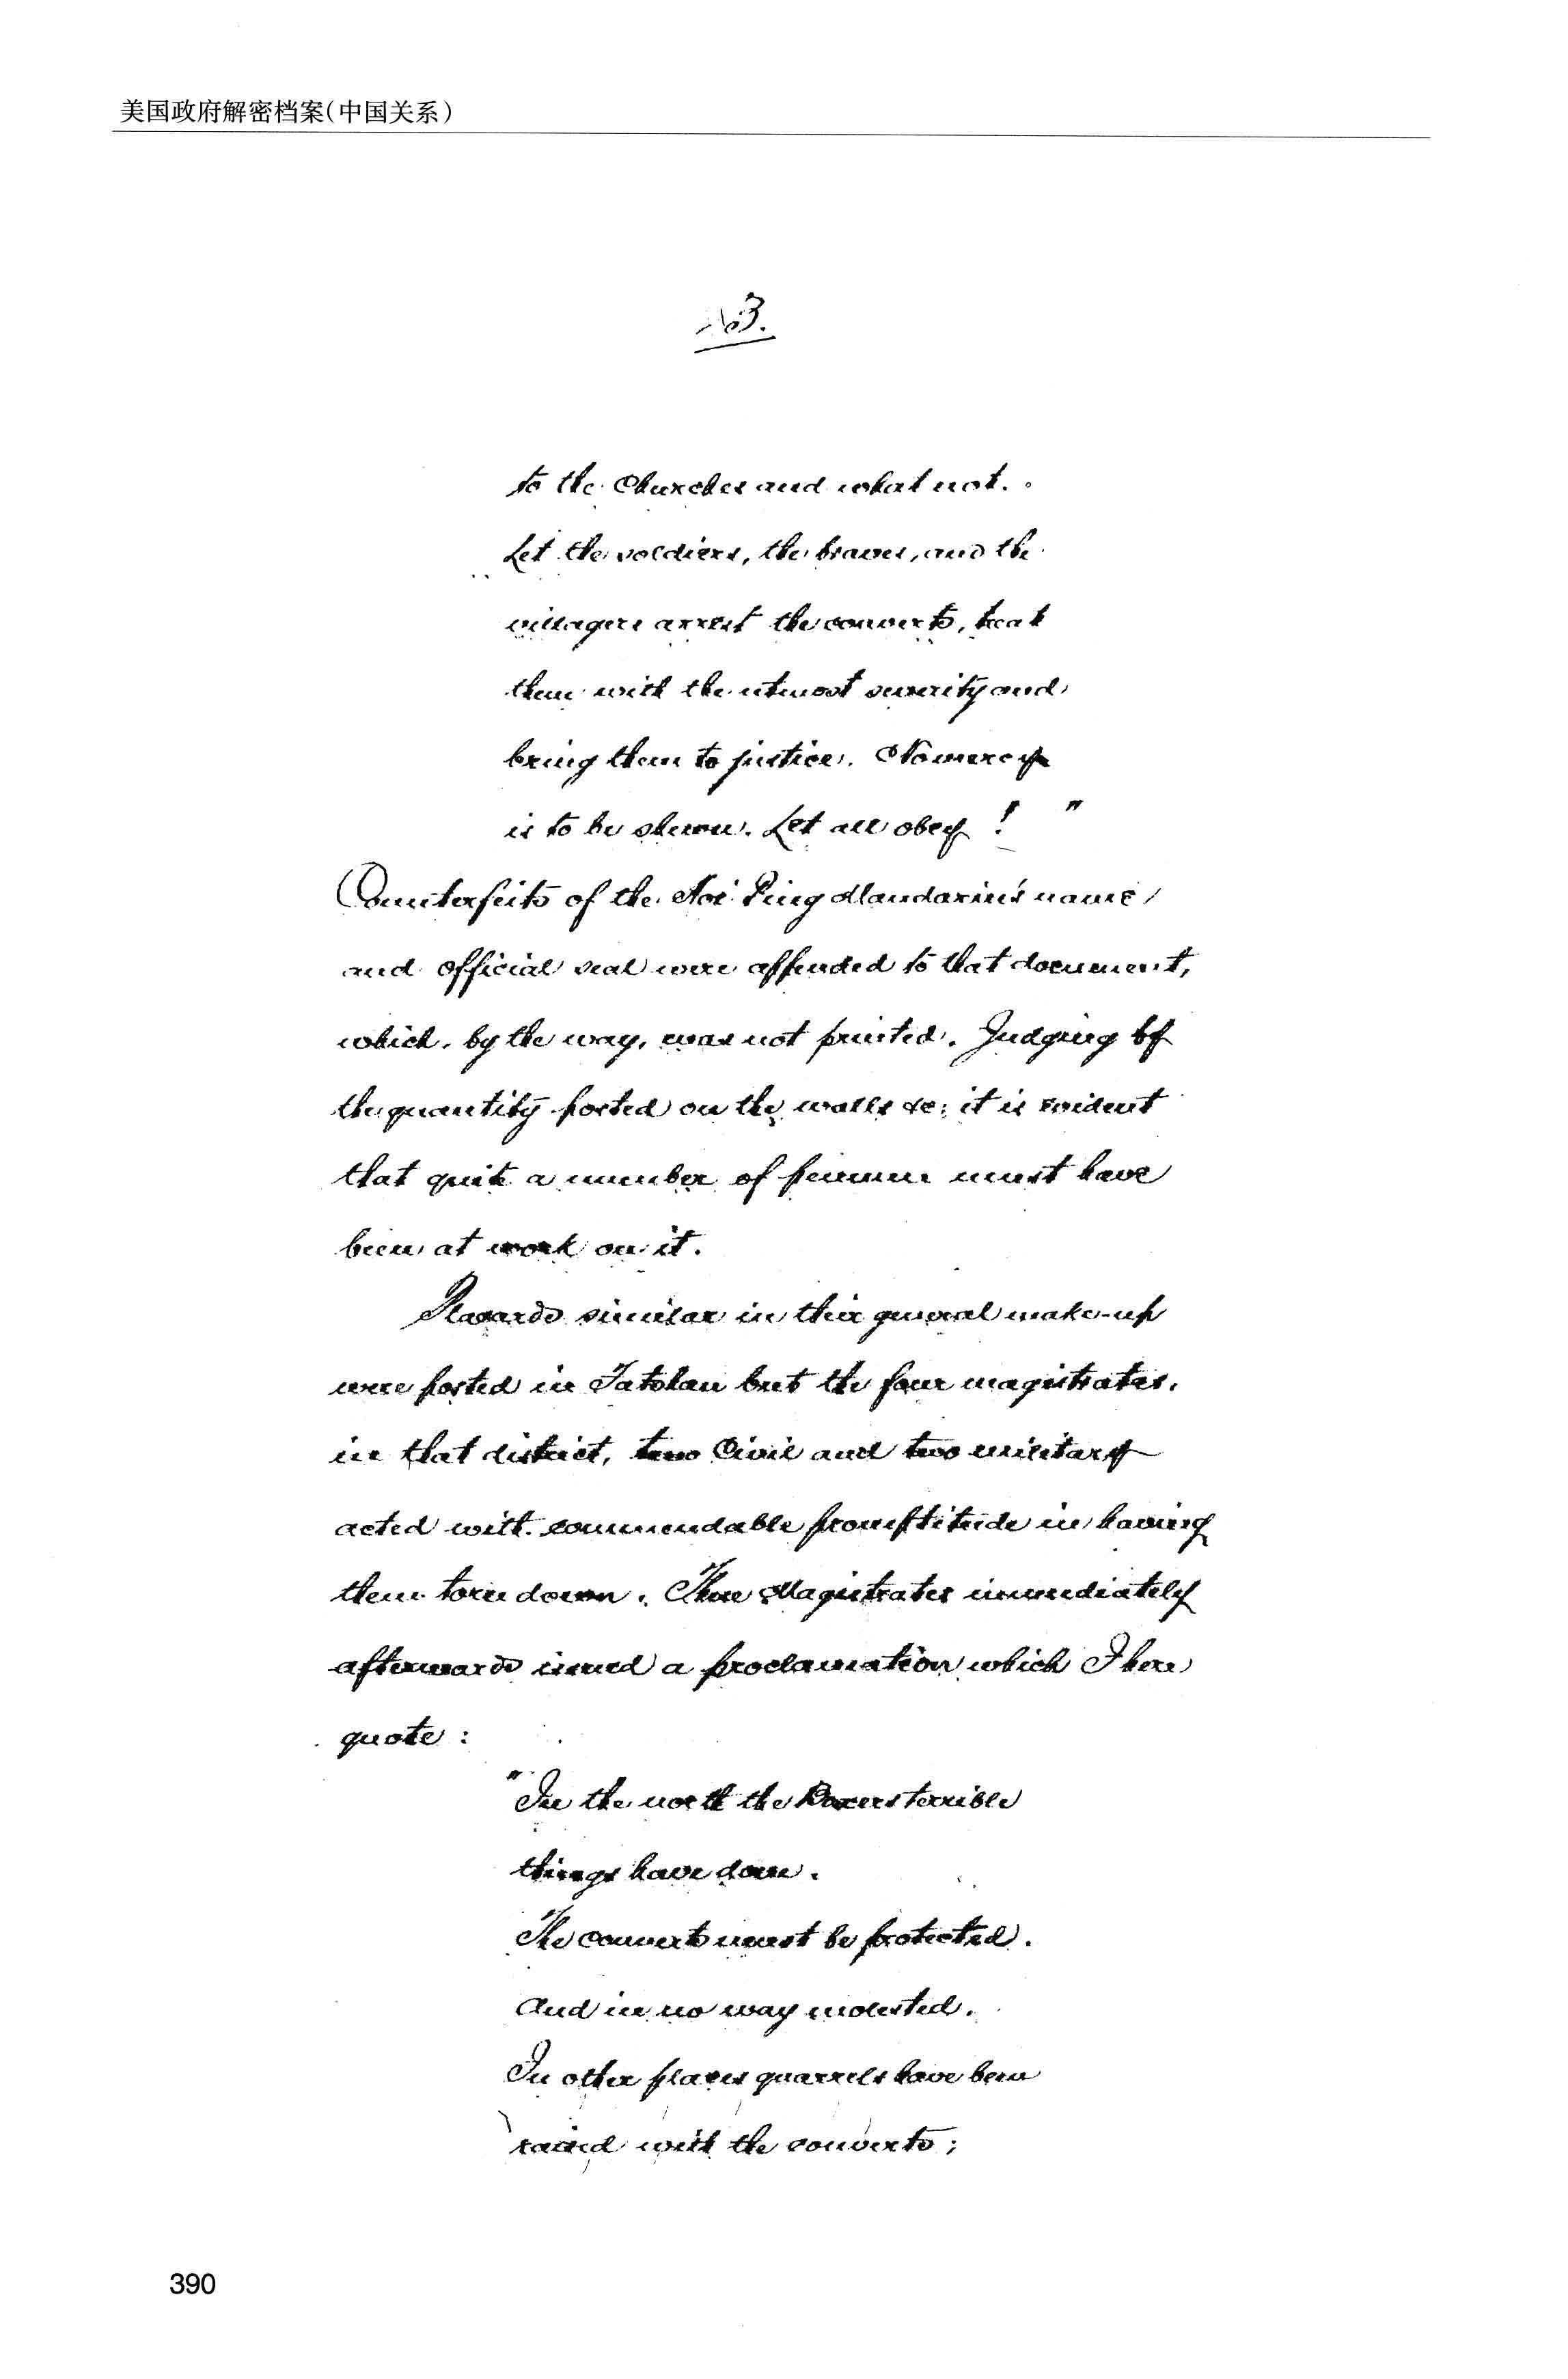 美国政府解密档案(中国关系)
No 3.
to the Churches and what not.
Let the soldiers, the braves, and the
villagers arrest the converts, treat
them with the utmost severity and
bring them to justice. No mercy
is to be shewn. Let all obey ! "
Counterfeits of the Hoi Ping Mandarin's name
and official seal were appended to that document,
which, by the way, was not printed. Judging by
the quantity posted on the walls &c; it is evident
that quite a number of penmen must have
been at work on it.
Placards similar in their general make-up
were posted in Fatshan but the four magistrates,
in that district, two Civil and two military
acted with commendable promptitude in having
them torn down. These Magistrates immediately
afterwards issued a proclamation which I here
quote :
"In the north the Boxers terrible
things have done.
The converts must be protected.
And in no way molested.
In other places quarrels have been
raised with the converts ;
390